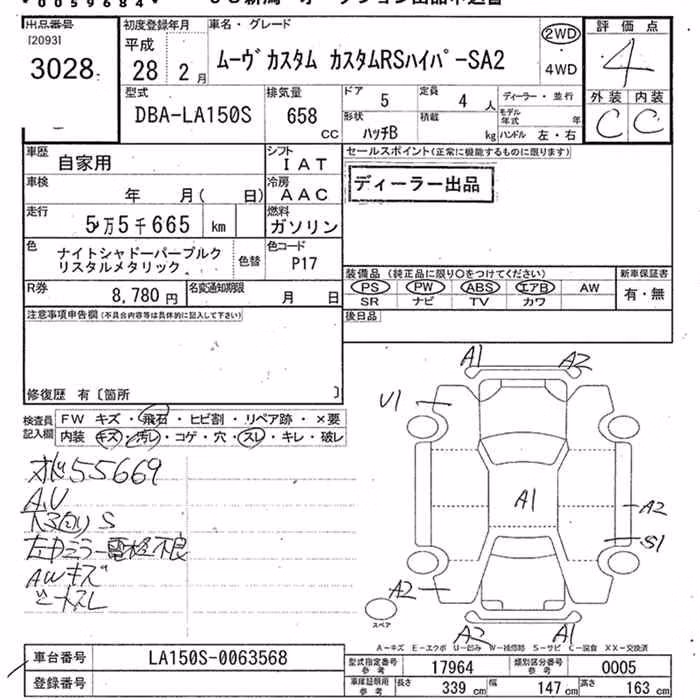 0059684
出品番号
[2093]
3028
初度登録年月
平成
28 2 月
車名・グレード
ムーヴ カスタム カスタムRSハイパーSA2
2WD
4WD
評価点
4
外装 内装
C C
型式
DBA-LA150S
排気量
658
CC
ドア
5
定員
4 人
ディーラー・並行
形状
ハッチB
積載
kg
モデル年式 年
ハンドル 左・右
車歴
自家用
シフト
IAT
セールスポイント(正常に機能するものに限ります)
ディーラー出品
車検
年 月( 日)
冷房
AAC
走行
5万5千665 km
燃料
ガソリン
色
ナイトシャドーパープルク
リスタルメタリック
色替
色コード
P17
R券
8,780 円
名変通知期限
月 日
装備品(純正品に限り○をつけてください)
PS PW ABS エアB AW
SR ナビ TV カワ
新車保証書
有・無
注意事項申告欄(不具合内容等は具体的に記入して下さい)
後日品
修復歴 有〔箇所 〕
検査員
記入欄
FW キズ・飛石・ヒビ割・リペア跡・×要
内装 キズ・汚レ・コゲ・穴・スレ・キレ・破レ
55669
AU
S
左ドミラー電格不良
AWキズ
シートスレ
A1
A2
U1
A1
A2
S1
A2
A2
A1
スペア
A-キズ E-エクボ U-凹み W-補修跡 S-サビ C-腐食 XX-交換済
車台番号
LA150S-0063568
登録番号
型式指定番号
参考
17964
類別区分番号
参考
0005
車庫証明用
参考
長さ 339 cm
幅 147 cm
高さ 163 cm